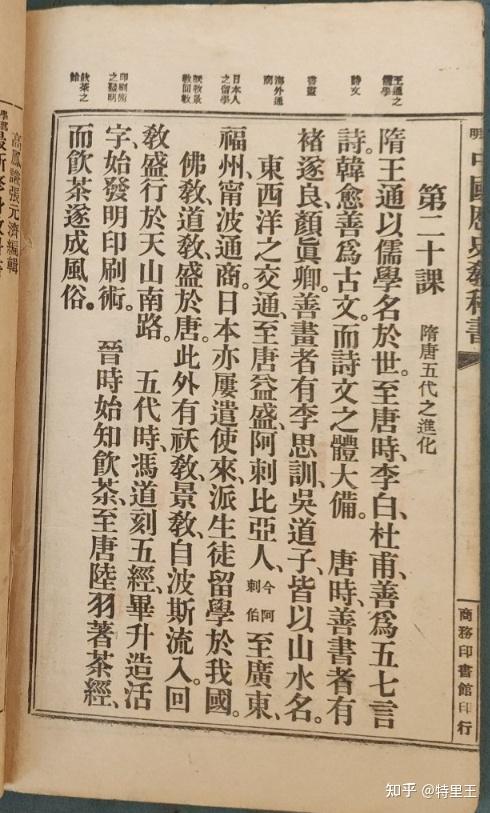 第二十課 隋唐五代之進化
隋王通以儒學名於世。至唐時、李白、杜甫、善爲五七言
詩。韓愈善爲古文。而詩文之體大備。 唐時、善書者有
褚遂良、顏眞卿。善畫者有李思訓、吳道子、皆以山水名。
東西洋之交通、至唐益盛、阿剌比亞人、今阿剌伯至廣東、
福州、甯波通商。日本亦屢遣使來、派生徒留學於我國。
佛敎、道敎、盛於唐。此外有祆敎、景敎、自波斯流入。回
敎盛行於天山南路。 五代時、馮道刻五經、畢升造活
字、始發明印刷術。 晉時始知飲茶、至唐陸羽著茶經、
而飲茶遂成風俗。
王通之儒學
詩文
書畫
海外通商
日本人之留學
祆敎景敎回敎
印刷術之發明
飲茶之始
中國歷史敎科書
商務印書館印行
高鳳謙張元濟編輯
知乎 @特里王